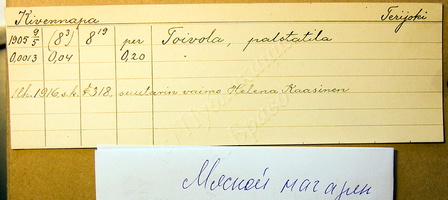 Kivennapa Terijoki
1905 9/5 (8³) 8¹⁹ per Toivola, palstatila
0,0013 0,04 0,20
1916 s.k. t 318. suutarin vaimo Helena Kaasinen
Мясной магазин